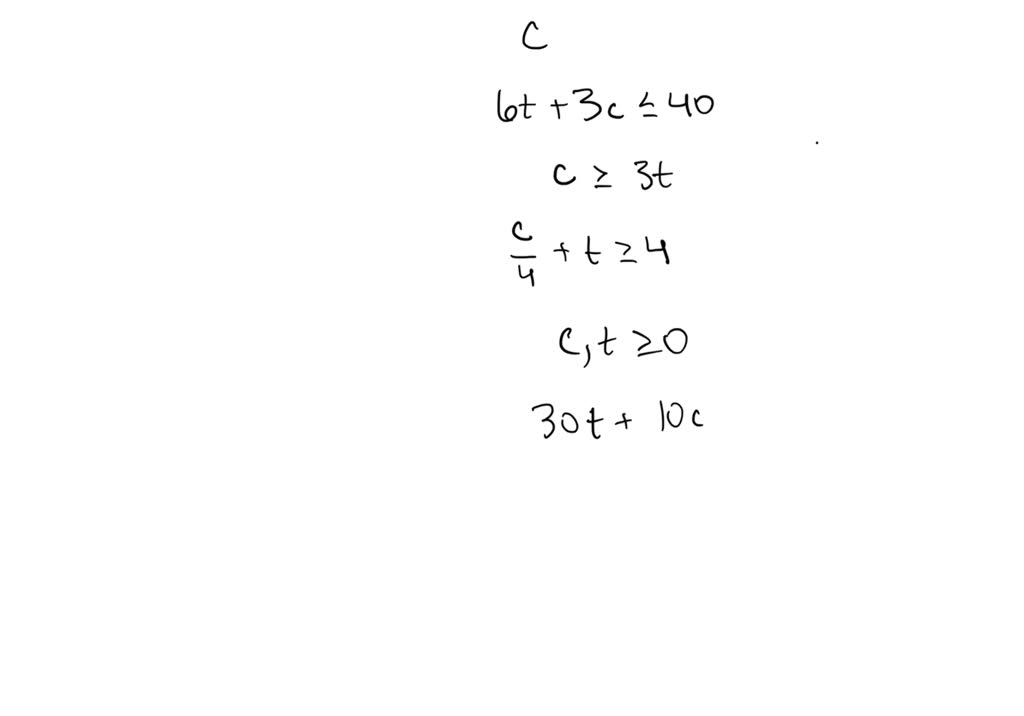 c
6t + 3c ≤ 40
c ≥ 3t
c/4 + t ≥ 4
c, t ≥ 0
30t + 10c